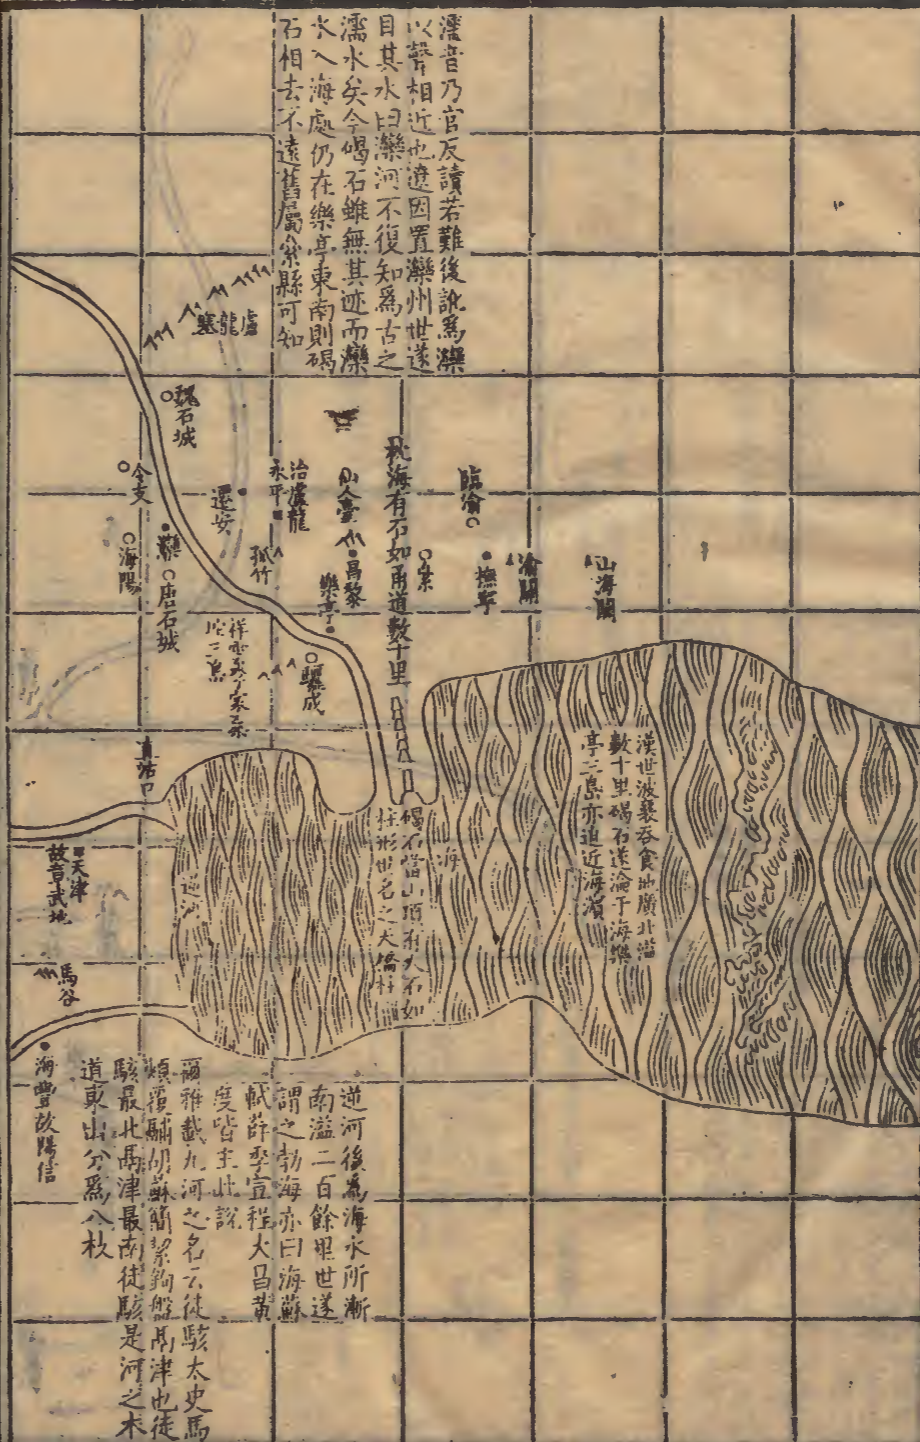 濡音乃官反讀若難後訛爲灤
以聲相近也遼因置灤州世遂
目其水曰灤河不復知爲古之
濡水矣今碣石雖無其迹而灤
水入海處仍在樂亭東南則碣
石相去不遠舊屬絫縣可知
盧龍塞
魏石城
令支
海陽
灤
唐石城
遷安
治盧龍
永平
孤竹
仙人臺
昌黎
樂亭
驪成
枕海有石如甬道數十里
絫
臨渝
撫寧
渝關
山海關
直沽口
天津
故章武地
馬谷
海豐故陽信
逆河
海
碣石當山頂有大石如
柱形世名之天橋柱
漢世波襄吞食地廣北溢
數十里碣石遂淪于海樂
亭二島亦迫近海濱
逆河後爲海水所漸
南溢二百餘里世遂
謂之勃海亦曰海蘇
軾薛季宣程大昌黃
度皆主此說
爾雅載九河之名云徒駭太史馬
頰覆鬴胡蘇簡絜鉤盤鬲津也徒
駭最北鬲津最南徒駭是河之本
道東出分爲八枝